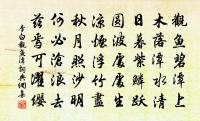 觀魚碧潭上
木落潭水清
日暮紫鱗躍
圓波處處生
涼煙浮竹盡
秋月照沙明
何必滄浪去
茲焉可濯纓
李白觀魚潭詞典網集